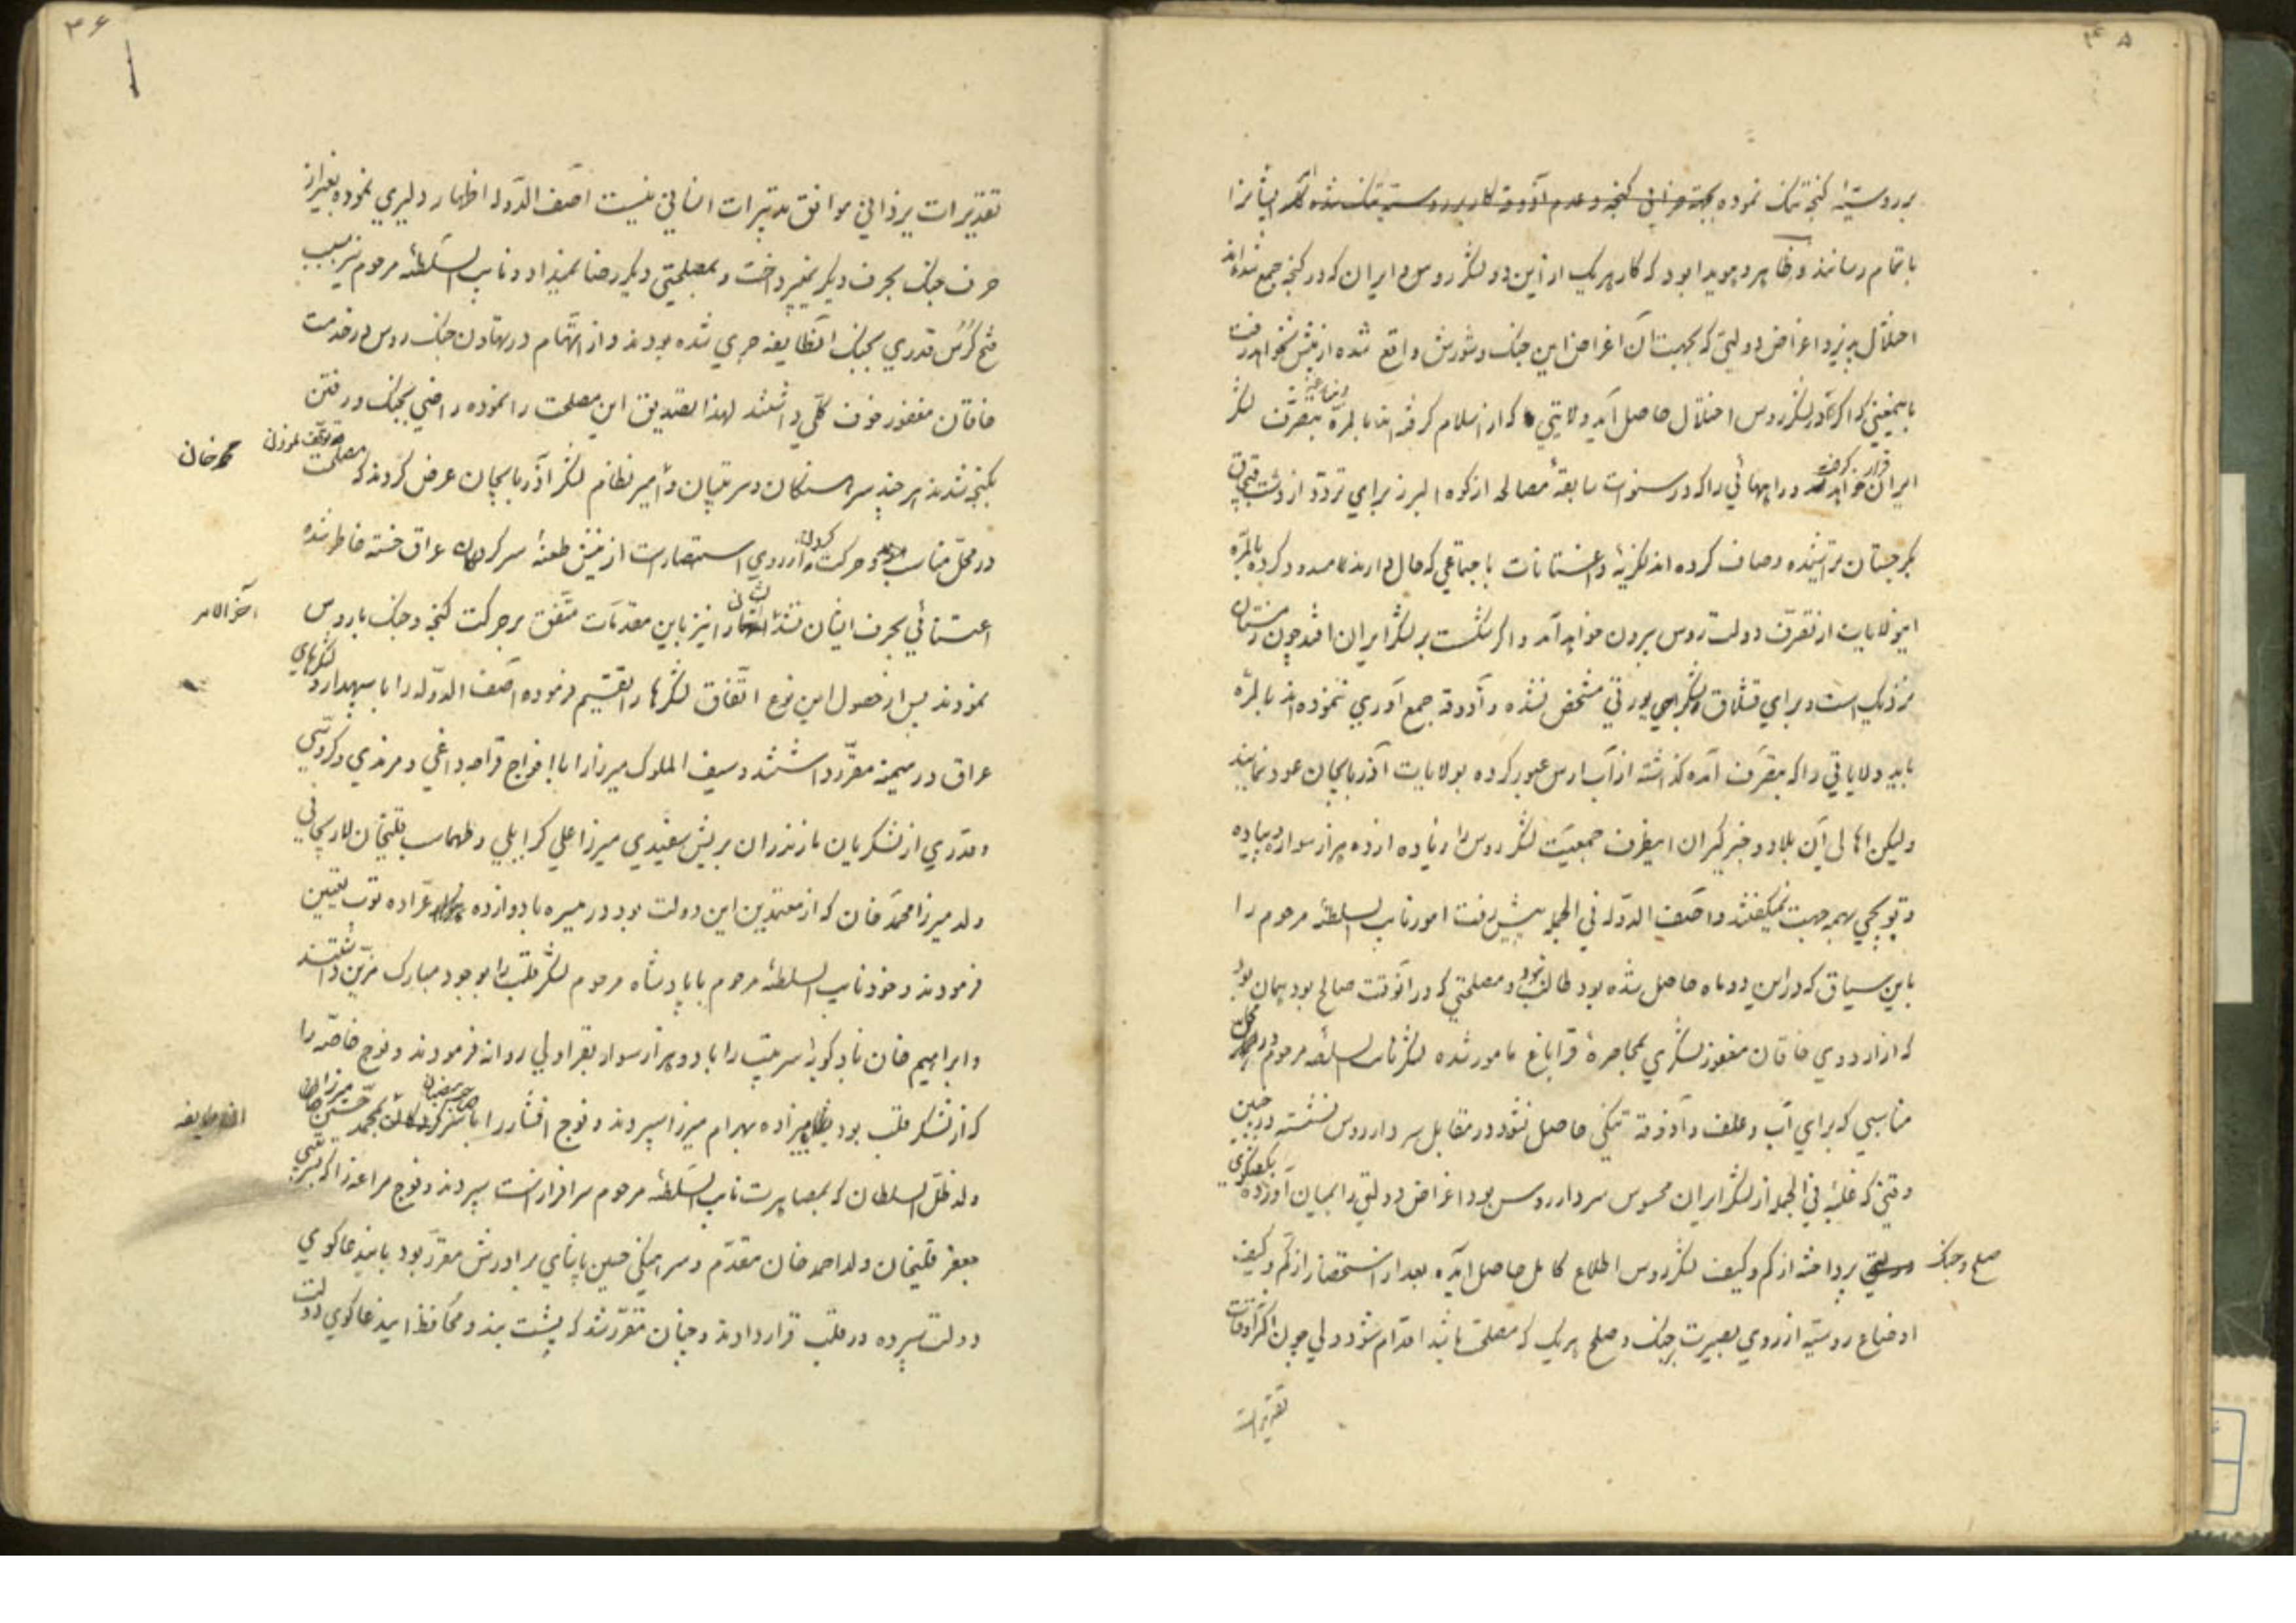 ۴۵
بر روسیّه گنجه تنک نموده بجهة خرابی گنجه و عدم آذوقه کار بر روسیه تنک شده ایشانرا
باتمام رسانند و ظاهر و هویدا بود که کار هریک از این دو لشکر روس و ایران که در گنجه جمع شده‌اند
اختلال پذیرد اغراض دولتی که بجهت آن اغراض این جنک و شورش واقع شده از پیش نخواهد رفت
باینمعنی که اگر در لشکر روس اختلال حاصل آید ولایتی که از اسلام گرفته‌اند بالمرّه بتصرّف لشکر
ایران خواهد و راههائی را که در سنوات سابقه مصالحه از کوه البرز برای تردّد از دشت قبچاق
بگرجستان تراشیده و صاف کرده‌اند لزکیه و داغستانات باجتماعی که حال دارند مسدود کرده بالمرّه
اینولایات از تصرّف دولت روس بیرون خواهد آمد و اگر شکست بر لشکر ایران افتد چون زمستان
نزدیک است و برای قشلاق لشکر یورتی مشخص نشده و آذوقه جمع آوری ننموده‌اند بالمرّه
باید ولایاتی را که بتصرّف آمده گذاشته از آب ارس عبور کرده بولایات آذربایجان عود نمایند
ولیکن اهالی آن بلاد و خبرگیران اینطرف جمعیّت لشکر روس را زیاده از ده هزار سواره و پیاده
و توپچی بهمه جهت نمیگفتند و آصف الدّوله فی الجمله پیش رفت امور نایب السلطنه مرحوم را
باین سیاق که در این دو ماه حاصل شده بود طالب نبود و مصلحتی که در آنوقت صالح بود همان بود
که از اردوی خاقان مغفور لشکری بمحاصرهٔ قراباغ مامور شده لشکر نایب السلطنه مرحوم در محلّ
مناسبی که برای آب و علف و آذوقه تنکی حاصل نشود در مقابل سردار روس نشسته در حین
وقتی که غلبهٔ فی الجمله از لشکر ایران محسوس سردار روس بود اغراض دولتی را بمیان آورده بگفتگوی
صلح و جنک پرداخته از کم و کیف لشکر روس اطلاع کامل حاصل آیده بعد از استحضار از کم و کیف
اوضاع روسیّه از روی بصیرت بجنک و صلح هریک که مصلحت باشد اقدام شود ولی چون اکثر اوقات
تقدیرات
۴۶
تقدیرات یزدانی موافق تدبیرات انسانی نیست آصف الدّوله اظهار دلیری نموده بغیر از
حرف جنک بحرف دیگر نمیپرداخت و بمصلحتی دیگر رضا نمیداد و نایب السّلطنه مرحوم نیز بسبب
فتح قدری بجنک آنطایفه جری شده بودند و از اتهام در تهاون جنک روس در خدمت
خاقان مغفور خوف کلّی داشتند لهذا تصدیق این مصلحت را نموده راضی بجنک و رفتن
بگنجه شدند هر چند سرهنگان و سرتیپان و امیر نظام محمد خان لشکر آذربایجان عرض کردند که مصلحت
در محلّ مناسب و حرکت از روی استبصار است از نیش طعنهٔ سرکردگان عراق خسته خاطر شده
اعتنائی بحرف ایشان نشد آخر الامر ایشان را نیز باین مقدّمات متّفق بر حرکت گنجه و جنک با روس
نمودند پس از حصول این نوع اتّفاق لشکرها را تقسیم فرموده آصف الدّوله را با سپهدار و لشکرهای
عراق در میمنه مقرّر داشتند و سیف الملوک میرزا را با افواج قراجه داغی و مرندی و
و قدری از لشکریان مازندران بریش سفیدی میرزا علی گرایلی و طهماسب قلیخان لاریجانی
ولد میرزا محمد خان که از معتمدین این دولت بود در میسره با دوازده عرّاده توپ تعیین
فرمودند و خود نایب السلطنه مرحوم با پادشاه مرحوم لشکر قلب را بوجود مبارک مزیّن داشتند
و ابراهیم خان بادکوبهٔ سرتیپ را با دو هزار سوار بقراولی روانه فرمودند و فوج خاصّه را
که از لشکر قلب بود بشاهزاده بهرام میرزا سپردند و فوج افشار را بمحمّد حسین میرزا
ولد ظلّ السلطان که بمصاهرت نایب السّلطنه مرحوم سرافراز است سپردند و فوج مراغه را که بسرتیپی
جعفر قلیخان ولد احمد خان مقدّم و سرهنگی حسین پاشای برادرش مقرّر بود باینداعاکوی
دولت سپرده در قلب قرار دادند و چنان مقرّر شد که پشت بند و محافظ اینداعاکوی دولت